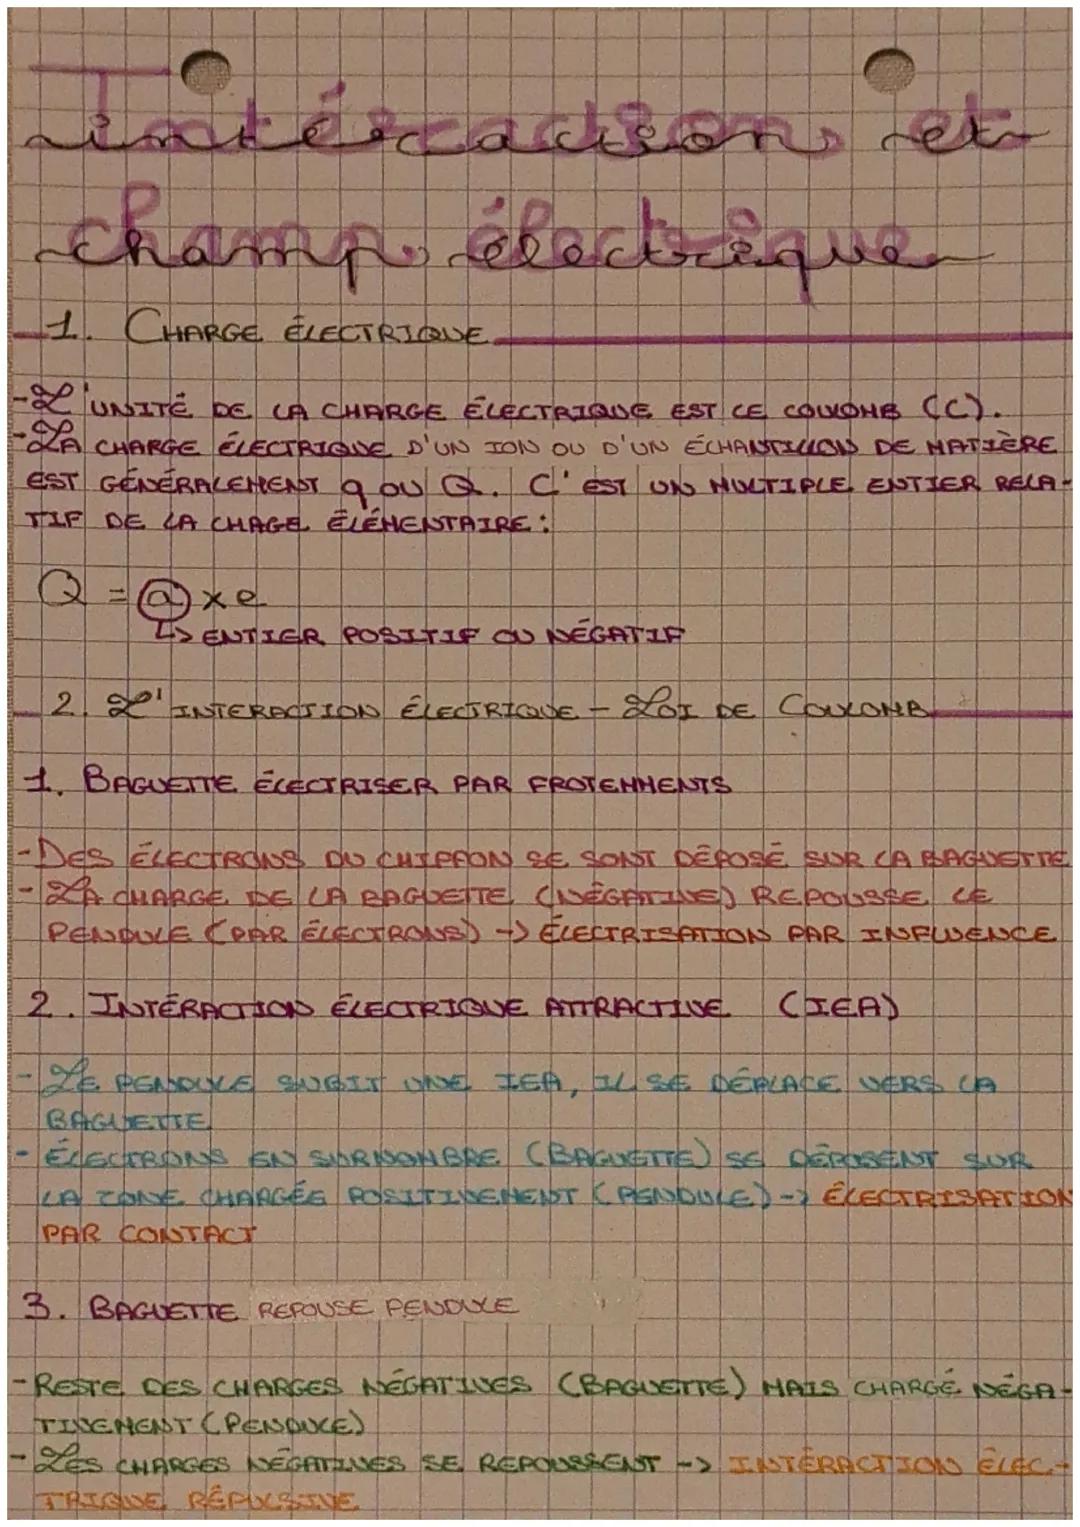 Intéraction et
champ électrique
1. CHARGE ÉLECTRIQUE
- L'UNITÉ DE LA CHARGE ÉLECTRIQUE EST LE COULOMB (C).
- LA CHARGE ÉLECTRIQUE D'UN ION OU D'UN ÉCHANTILLON DE MATIÈRE
EST GÉNÉRALEMENT q OU Q. C'EST UN MULTIPLE ENTIER RELA-
TIF DE LA CHAGE ÉLÉMENTAIRE :
Q = a x e
↳ ENTIER POSITIF OU NÉGATIF
2. L'INTERACTION ÉLECTRIQUE - LOI DE COULOMB
1. BAGUETTE ÉLECTRISER PAR FROTEMMENTS
- DES ÉLECTRONS DU CHIFFON SE SONT DÉPOSÉ SUR LA BAGUETTE
- LA CHARGE DE LA BAGUETTE (NÉGATIVE) REPOUSSE LE
PENDULE (PAR ÉLECTRONS) -> ÉLECTRISATION PAR INFLUENCE
2. INTÉRACTION ÉLECTRIQUE ATTRACTIVE (IEA)
- LE PENDULE SUBIT UNE IEA, IL SE DÉPLACE VERS LA
BAGUETTE
- ÉLECTRONS EN SURNOMBRE (BAGUETTE) SE DÉPOSENT SUR
LA ZONE CHARGÉE POSITIVEMENT (PENDULE) -> ÉLECTRISATION
PAR CONTACT
3. BAGUETTE REPOUSE PENDULE
- RESTE DES CHARGES NÉGATIVES (BAGUETTE) MAIS CHARGÉ NÉGA-
TIVEMENT (PENDULE)
- LES CHARGES NÉGATIVES SE REPOUSSENT -> INTÉRACTION ÉLEC-
TRIQUE RÉPULSIVE